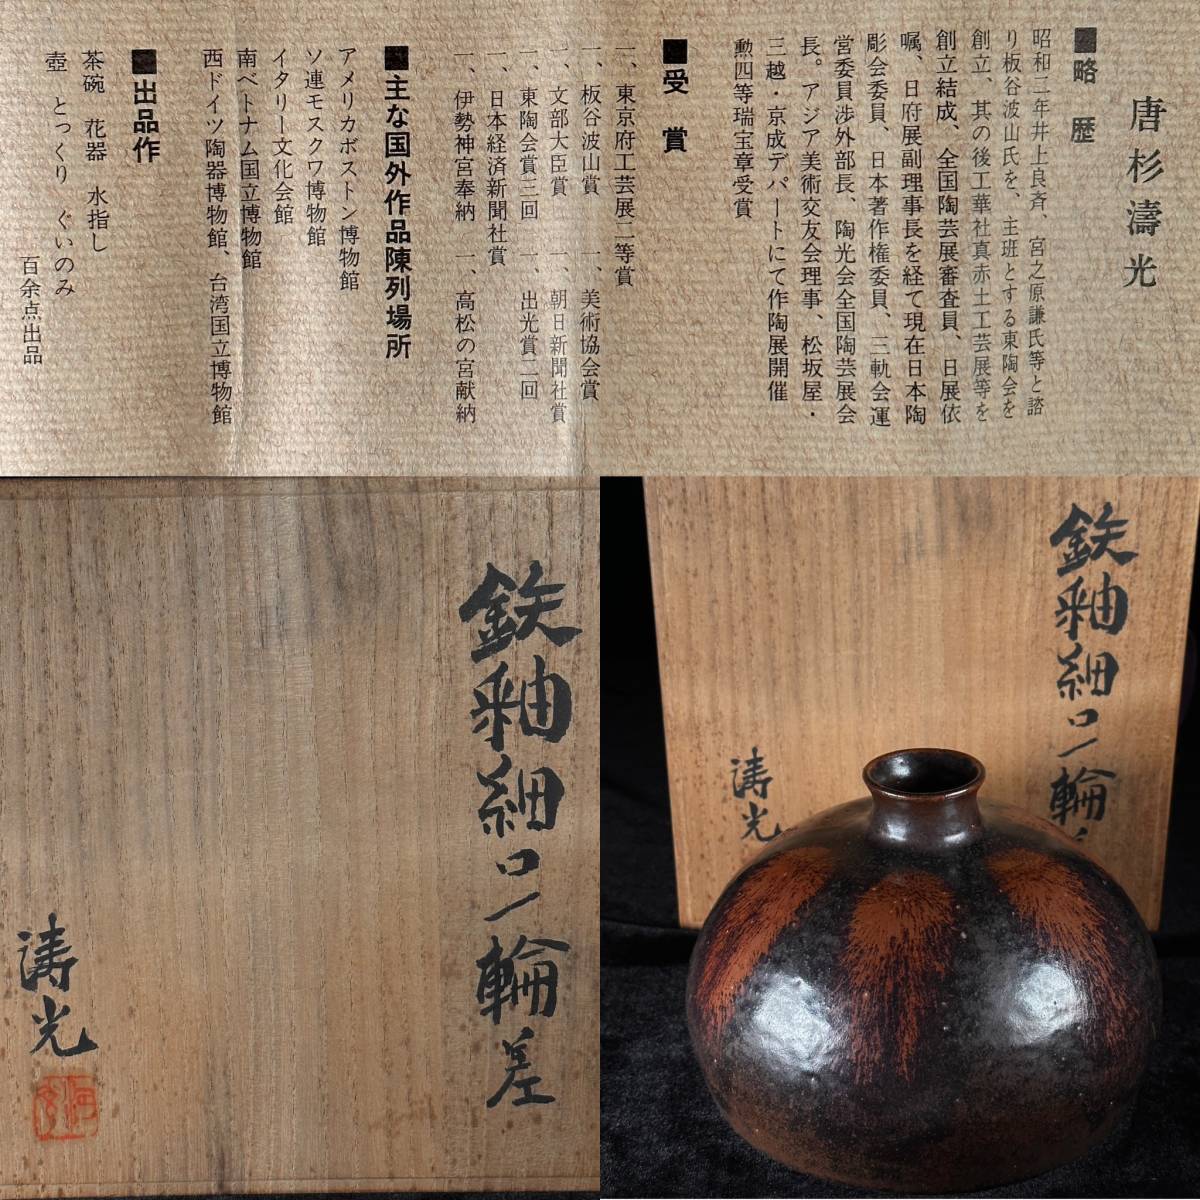 唐杉濤光
■略歴
昭和二年井上良斉、宮之原謙氏等と諮
り板谷波山氏を、主班とする東陶会を
創立、其の後工華社真赤土工芸展等を
創立結成、全国陶芸展審査員、日展依
嘱、日府展副理事長を経て現在日本陶
彫会委員、日本著作権委員、三軌会運
営委員渉外部長、陶光会全国陶芸展会
長。アジア美術交友会理事、松坂屋・
三越・京成デパートにて作陶展開催
勲四等瑞宝章受賞
■受賞
一、東京府工芸展二等賞
一、板谷波山賞 一、美術協会賞
一、文部大臣賞 一、朝日新聞社賞
一、東陶会賞三回 一、出光賞二回
一、日本経済新聞社賞
一、伊勢神宮奉納 一、高松の宮献納
■主な国外作品陳列場所
アメリカボストン博物館
ソ連モスクワ博物館
イタリー文化会館
南ベトナム国立博物館
西ドイツ陶器博物館、台湾国立博物館
■出品作
茶碗 花器 水指し
壺 とっくり ぐいのみ
百余点出品
鉄釉細口一輪差
濤光
鉄釉細口一輪差
濤光